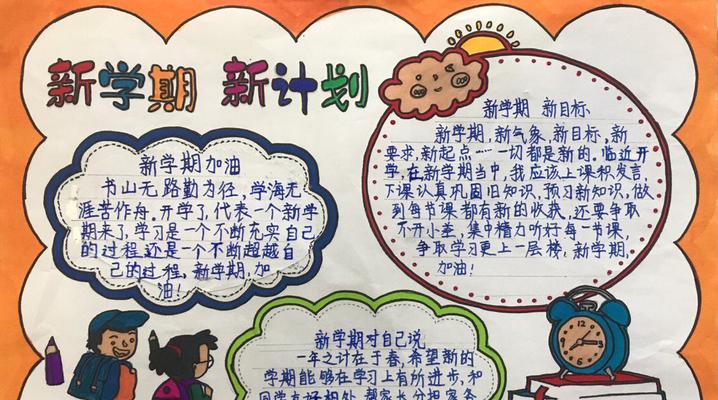 新学期 新计划
新学期加油
书山无路勤为径，学海无
涯苦作舟，开学了，代表一个新学
期来了，学习是一个不断充实自己
的过程，还是一个不断超越自
己的过程，新学期，加
油！
新学期 新目标
新学期，新气象，新目标，新
要求，新起点……一切都是新的。临近开
学，在新学期当中，我应该上课积发言，
下课认真巩固旧知识，预习新知识，做
到每节课都有新的收获，还要争取
不开小差，集中精力听好每一节课，
争取学习更上一层楼，新学期，
加油！
新学期对自己说
一年之计在于春，希望新的
学期能够在学习上有所进步，和
同学友好相处，帮家长分担家务